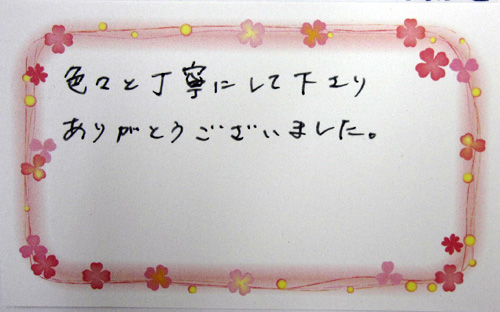 色々と丁寧にして下さり
ありがとうございました。